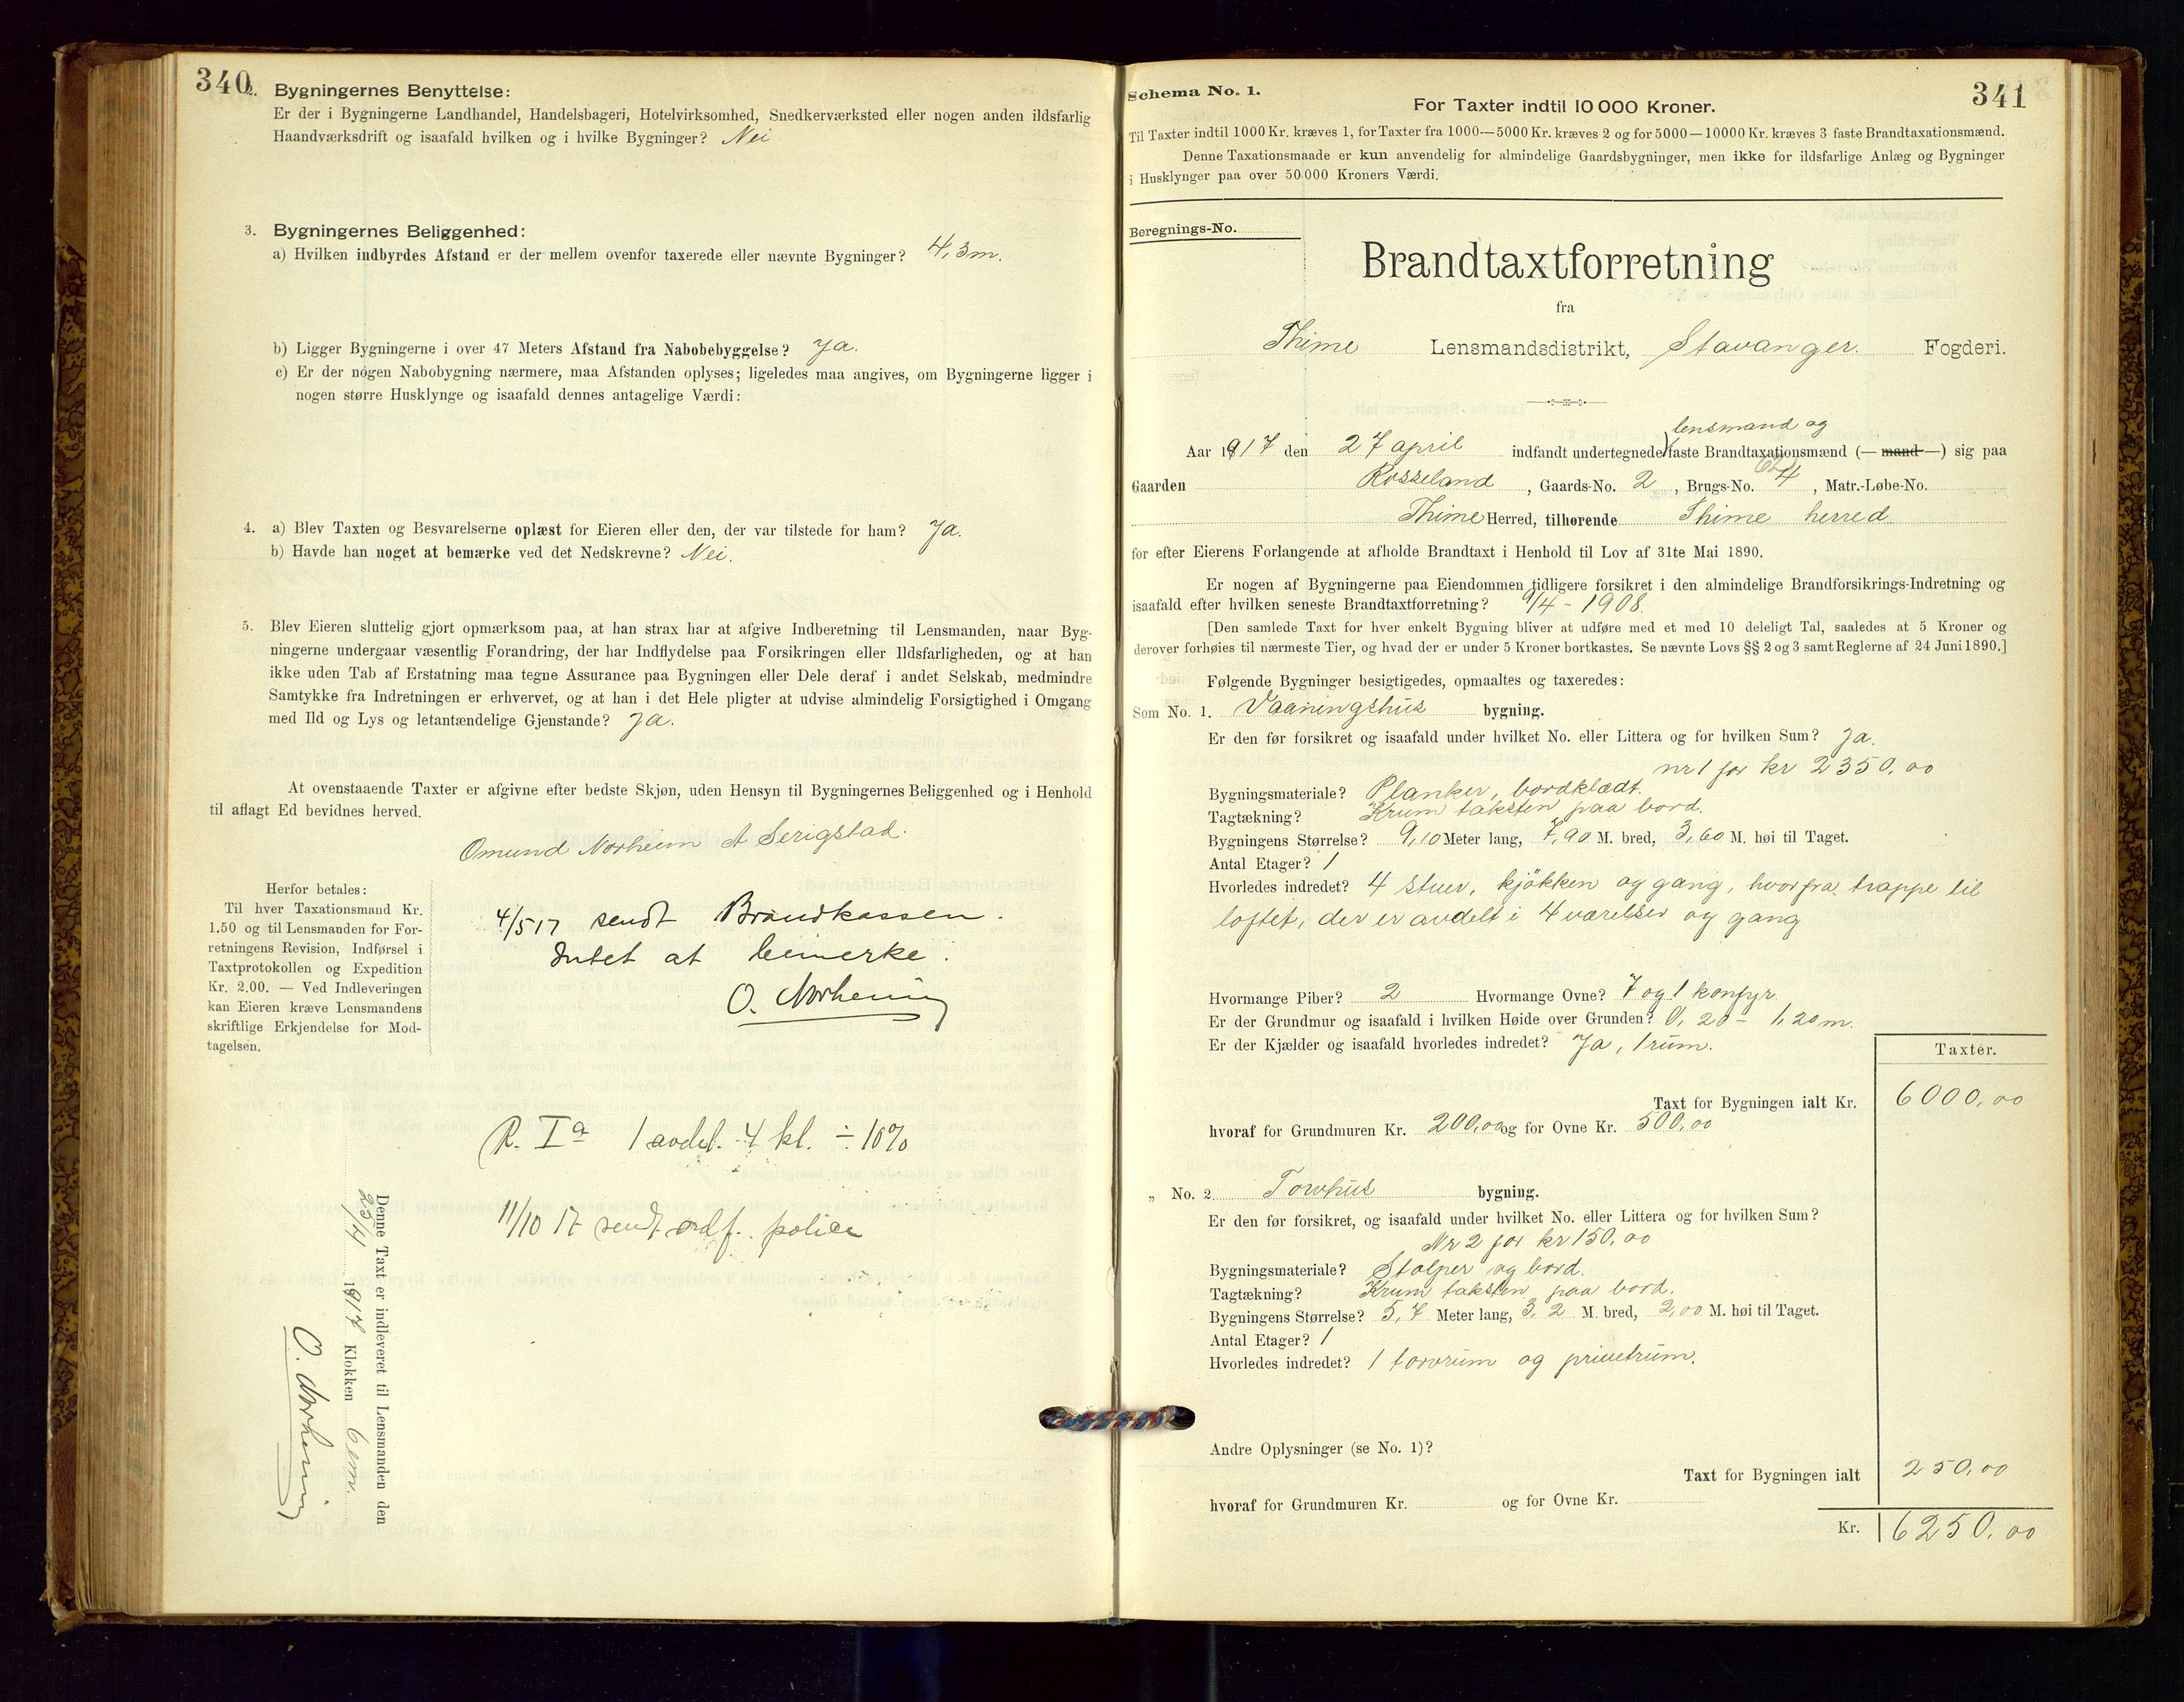 340
2. Bygningernes Benyttelse:
Er der i Bygningerne Landhandel, Handelsbageri, Hotelvirksomhed, Snedkerværksted eller nogen anden ildsfarlig
Haandværksdrift og isaafald hvilken og i hvilke Bygninger? Nei
3. Bygningernes Beliggenhed:
a) Hvilken indbyrdes Afstand er der mellem ovenfor taxerede eller nævnte Bygninger? 4,3m.
b) Ligger Bygningerne i over 47 Meters Afstand fra Nabobebyggelse? Ja.
c) Er der nogen Nabobygning nærmere, maa Afstanden oplyses; ligeledes maa angives, om Bygningerne ligger i
nogen større Husklynge og isaafald dennes antagelige Værdi:
4. a) Blev Taxten og Besvarelserne oplæst for Eieren eller den, der var tilstede for ham? Ja.
b) Havde han noget at bemærke ved det Nedskrevne? Nei.
5. Blev Eieren sluttelig gjort opmærksom paa, at han strax har at afgive Indberetning til Lensmanden, naar Byg-
ningerne undergaar væsentlig Forandring, der har Indflydelse paa Forsikringen eller Ildsfarligheden, og at han
ikke uden Tab af Erstatning maa tegne Assurance paa Bygningen eller Dele deraf i andet Selskab, medmindre
Samtykke fra Indretningen er erhvervet, og at han i det Hele pligter at udvise almindelig Forsigtighed i Omgang
med Ild og Lys og letantændelige Gjenstande? Ja.
At ovenstaaende Taxter er afgivne efter bedste Skjøn, uden Hensyn til Bygningernes Beliggenhed og i Henhold
til aflagt Ed bevidnes herved.
Omund Norheim A Serigstad.
Herfor betales:
Til hver Taxationsmand Kr.
1.50 og til Lensmanden for For-
retningens Revision, Indførsel i
Taxtprotokollen og Expedition
Kr. 2.00. — Ved Indleveringen
kan Eieren kræve Lensmandens
skriftlige Erkjendelse for Mod-
tagelsen.
4/5 17 sendt Brandkassen.
Intet at bemerke.
O. Norheim
R. Ia 1 avdel. 4 kl. ÷ 10%
11/10 17 sendt police
Denne Taxt er indleveret til Lensmanden den
1917 Klokken 6 em.
O. Norheim
341
Schema No. 1.
For Taxter indtil 10 000 Kroner.
Til Taxter indtil 1000 Kr. kræves 1, for Taxter fra 1000—5000 Kr. kræves 2 og for 5000—10000 Kr. kræves 3 faste Brandtaxationsmænd.
Denne Taxationsmaade er kun anvendelig for almindelige Gaardsbygninger, men ikke for ildsfarlige Anlæg og Bygninger
i Husklynger paa over 50 000 Kroners Værdi.
Beregnings-No.
Brandtaxtforretning
fra
Thime Lensmandsdistrikt, Stavanger. Fogderi.
lensmand og
Aar 1917 den 27 april indfandt undertegnede faste Brandtaxationsmænd (— mand —) sig paa
Gaarden Rosseland, Gaards-No. 2, Brugs-No. 4, Matr.-Løbe-No.
Thime Herred, tilhørende Thime herred
for efter Eierens Forlangende at afholde Brandtaxt i Henhold til Lov af 31te Mai 1890.
Er nogen af Bygningerne paa Eiendommen tidligere forsikret i den almindelige Brandforsikrings-Indretning og
isaafald efter hvilken seneste Brandtaxtforretning? 9/4 - 1908.
[Den samlede Taxt for hver enkelt Bygning bliver at udføre med et med 10 deleligt Tal, saaledes at 5 Kroner og
derover forhøies til nærmeste Tier, og hvad der er under 5 Kroner bortkastes. Se nævnte Lovs §§ 2 og 3 samt Reglerne af 24 Juni 1890.]
Følgende Bygninger besigtigedes, opmaaltes og taxeredes:
Som No. 1. Vaaningshus bygning.
Er den før forsikret og isaafald under hvilket No. eller Littera og for hvilken Sum? Ja.
nr 1 for kr 2350,00
Bygningsmateriale? Planker, bordklædt.
Tagtækning? Krum taksten paa bord.
Bygningens Størrelse? 9,10 Meter lang, 7,90 M. bred, 3,60 M. høi til Taget.
Antal Etager? 1
Hvorledes indredet? 4 stuer, kjökken og gang, hvorfra trappe til
loftet, der er avdelt i 4 værelser og gang
Hvormange Piber? 2 Hvormange Ovne? 7 og 1 komfyr.
Er der Grundmur og isaafald i hvilken Høide over Grunden? 0,20 - 1,20 m.
Er der Kjælder og isaafald hvorledes indredet? Ja, 1 rum.
Taxter.
Taxt for Bygningen ialt Kr. 6000,00
hvoraf for Grundmuren Kr. 200,00 og for Ovne Kr. 500,00
„ No. 2 Torvhus bygning.
Er den før forsikret, og isaafald under hvilket No. eller Littera og for hvilken Sum?
Nr 2 for kr 150,00
Bygningsmateriale? Stolper og bord.
Tagtækning? Krum taksten paa bord.
Bygningens Størrelse? 5,7 Meter lang, 3,2 M. bred, 2,00 M. høi til Taget.
Antal Etager? 1
Hvorledes indredet? 1 torvrum og privetrum.
Andre Oplysninger (se No. 1)?
Taxt for Bygningen ialt 250,00
hvoraf for Grundmuren Kr. og for Ovne Kr.
Kr. 6250,00